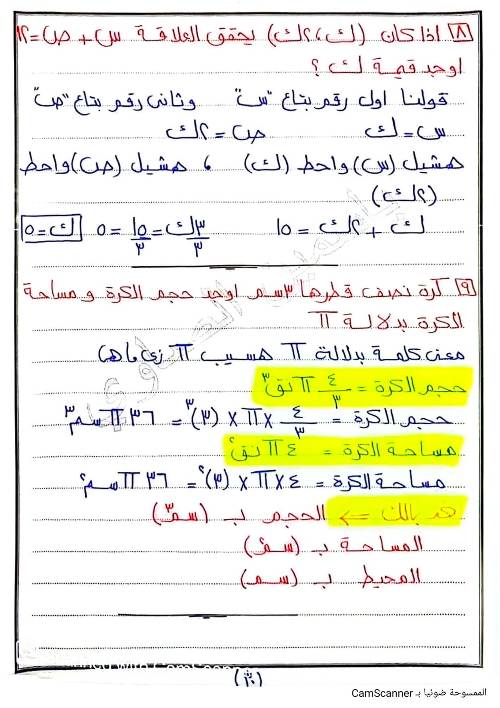 ٨ اذا كان (ك،٢ك) يحقق العلاقة س + ص = ١٢
اوجد قيمة ك ؟
قولنا اول رقم بتاع "س" وثانى رقم بتاع "ص"
س = ك ص = ٢ك
هشيل (س) واحط (ك) ، هشيل (ص) واحط
(٢ك)
ك + ٢ك = ١٥ ٣ك/٣ = ١٥/٣ = ٥ ك = ٥
٩ كرة نصف قطرها ٣سم اوجد حجم الكرة و مساحة
الكرة بدلالة π
معنى كلمة بدلالة π هسيب π زى ماهى
حجم الكرة = ٤/٣ π نق³
حجم الكرة = ٤/٣ × π × (٣)³ = ٣٦ π سم³
مساحة الكرة = ٤ π نق²
مساحة الكرة = ٤ × π × (٣)² = ٣٦ π سم²
خد بالك ⇐ الحجم ب (سم³)
المساحة ب (سم²)
المحيط ب (سم)
(٣٠)
الممسوحة ضوئيا بـ CamScanner